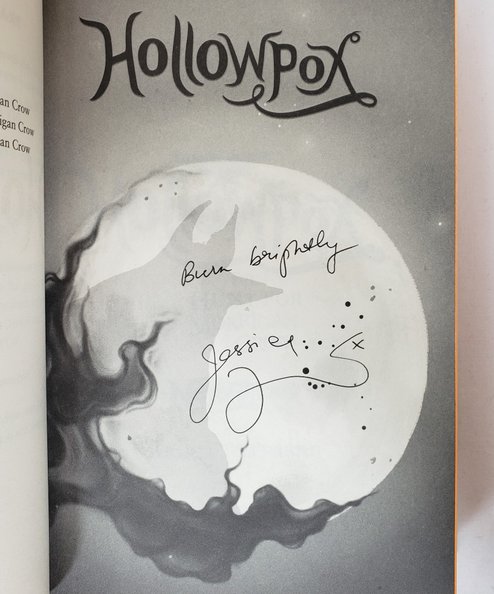 Hollowpox
an Crow
igan Crow
an Crow
Burn brightly
Jessica x